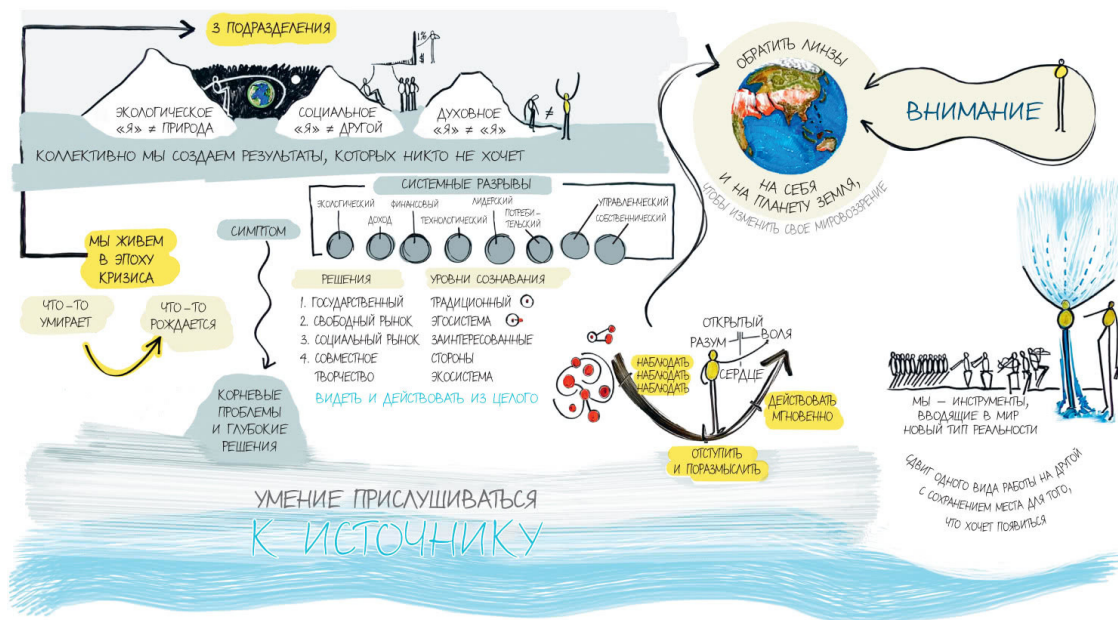 3 ПОДРАЗДЕЛЕНИЯ
1%
ЭКОЛОГИЧЕСКОЕ
«Я» ≠ ПРИРОДА
СОЦИАЛЬНОЕ
«Я» ≠ ДРУГОЙ
ДУХОВНОЕ
«Я» ≠ «Я»
≠
КОЛЛЕКТИВНО МЫ СОЗДАЕМ РЕЗУЛЬТАТЫ, КОТОРЫХ НИКТО НЕ ХОЧЕТ
ОБРАТИТЬ ЛИНЗЫ
НА СЕБЯ
И НА ПЛАНЕТУ ЗЕМЛЯ,
ЧТОБЫ ИЗМЕНИТЬ СВОЕ МИРОВОЗЗРЕНИЕ
ВНИМАНИЕ
СИСТЕМНЫЕ РАЗРЫВЫ
ЭКОЛОГИЧЕСКИЙ
ДОХОД
ФИНАНСОВЫЙ
ТЕХНОЛОГИЧЕСКИЙ
ЛИДЕРСКИЙ
ПОТРЕБИ-
ТЕЛЬСКИЙ
УПРАВЛЕНЧЕСКИЙ
СОБСТВЕННИЧЕСКИЙ
МЫ ЖИВЕМ
В ЭПОХУ
КРИЗИСА
ЧТО-ТО
УМИРАЕТ
ЧТО-ТО
РОЖДАЕТСЯ
СИМПТОМ
КОРНЕВЫЕ
ПРОБЛЕМЫ
И ГЛУБОКИЕ
РЕШЕНИЯ
РЕШЕНИЯ
1. ГОСУДАРСТВЕННЫЙ
2. СВОБОДНЫЙ РЫНОК
3. СОЦИАЛЬНЫЙ РЫНОК
4. СОВМЕСТНОЕ
ТВОРЧЕСТВО
УРОВНИ СОЗНАВАНИЯ
ТРАДИЦИОННЫЙ
ЭГОСИСТЕМА
ЗАИНТЕРЕСОВАННЫЕ
СТОРОНЫ
ЭКОСИСТЕМА
ВИДЕТЬ И ДЕЙСТВОВАТЬ ИЗ ЦЕЛОГО
НАБЛЮДАТЬ
НАБЛЮДАТЬ
НАБЛЮДАТЬ
ОТКРЫТЫЙ
РАЗУМ
ВОЛЯ
СЕРДЦЕ
ДЕЙСТВОВАТЬ
МГНОВЕННО
ОТСТУПИТЬ
И ПОРАЗМЫСЛИТЬ
МЫ – ИНСТРУМЕНТЫ,
ВВОДЯЩИЕ В МИР
НОВЫЙ ТИП РЕАЛЬНОСТИ
СДВИГ ОДНОГО ВИДА РАБОТЫ НА ДРУГОЙ
С СОХРАНЕНИЕМ МЕСТА ДЛЯ ТОГО,
ЧТО ХОЧЕТ ПОЯВИТЬСЯ
УМЕНИЕ ПРИСЛУШИВАТЬСЯ
К ИСТОЧНИКУ